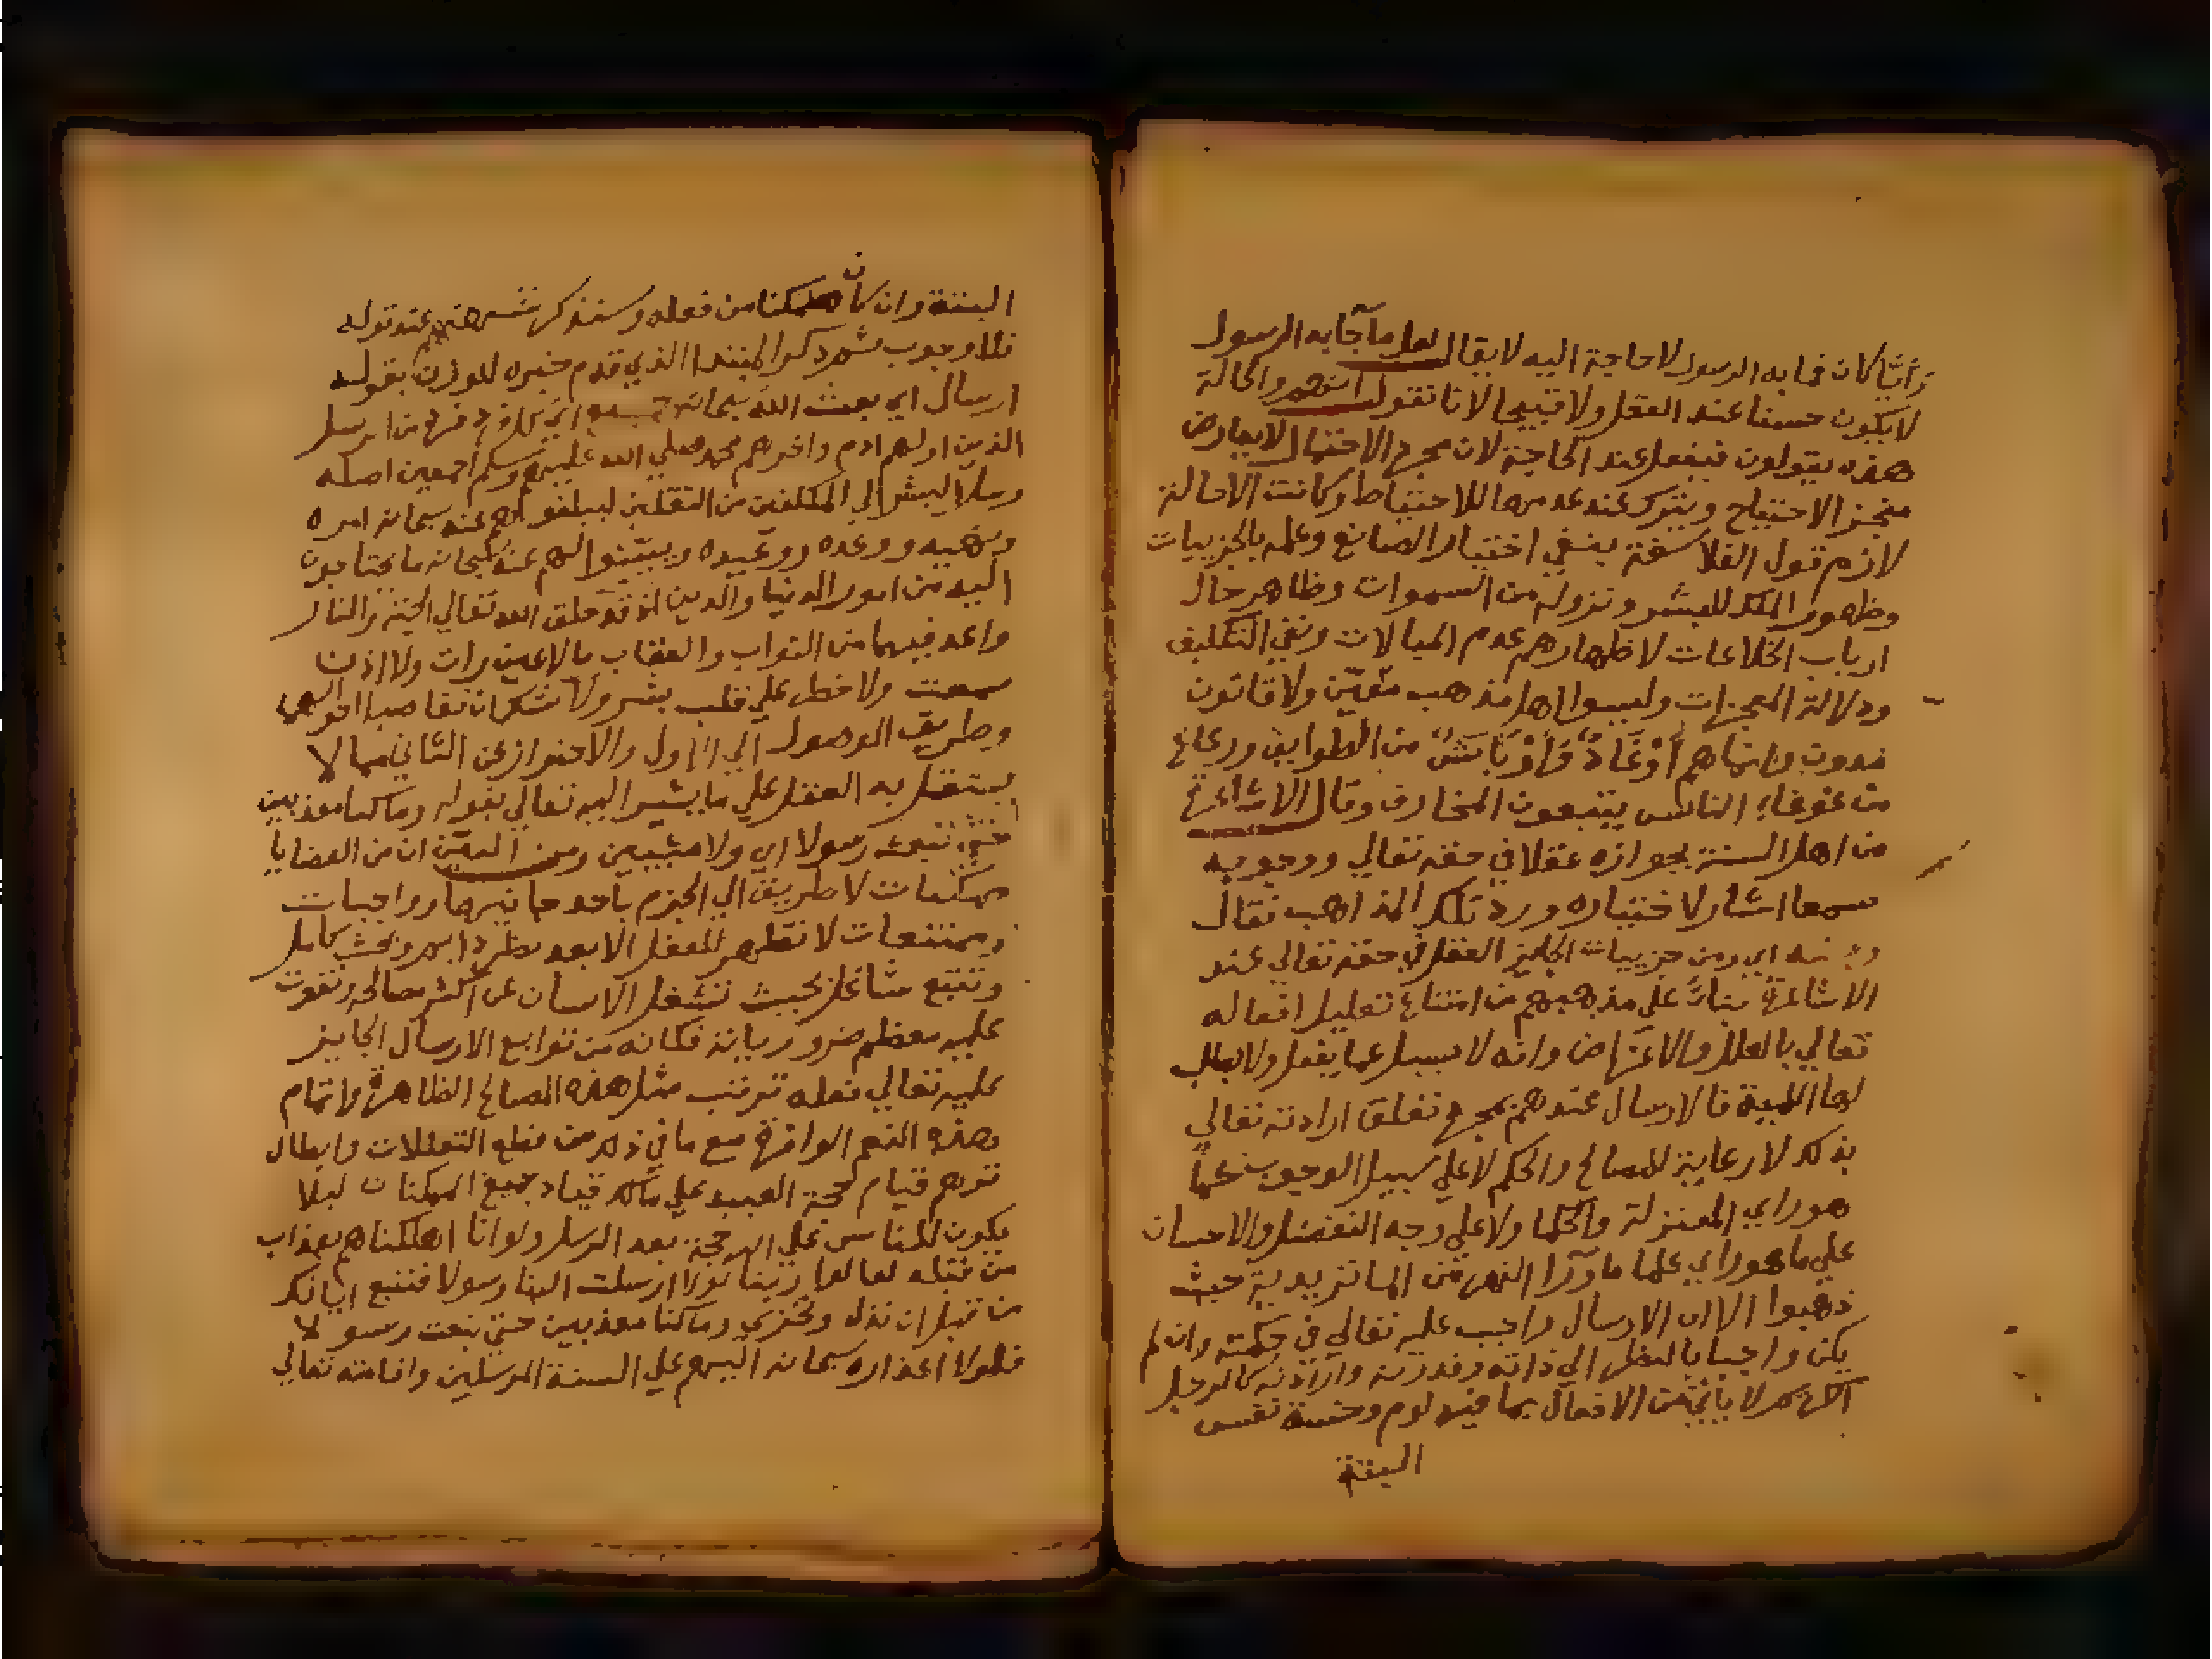 وأيا كان فما به الرسول لا حاجة اليه لا يقال لعل ما جا به الرسول
لا يكون حسنا عند العقل ولا قبيحا لانا نقول انهم والحالة
هذه يقولون فيفعل عند الحاجة لان مجرد الاحتمال لا يعارض
منجز الاحتياج ويترك عند عدمها للاحتياط وكانت الاحالة
لازم قول الفلاسفة بنفي اختيار الصانع وعلمه بالجزييات
وظهور الملك للبشر ونزوله من السموات وظاهر حال
ارباب الخلاعات لاظهارهم عدم المبالات ونفي التكليف
ودلالة المعجزات وليسوا اهل مذهب معين ولا قانون
مدون وانما هم أوغاد وأوباش من الطوايف ورعاع
من غوغاء الناس يتبعون المخارف وقال الاشاعرة
من اهل السنة بجوازه عقلا في حقه تعالي ووجوبه
سمعا اشار لاختياره ورد تلك المذاهب فقال
ومنه اي ومن جزييات الجايز العقلي في حقه تعالي عند
الاشاعرة بناء علي مذهبهم من امتناع تعليل افعاله
تعالي بالعلل والاغراض وانه لا يسيل عما يفعل ولا يطلب
لها اللمية فالارسال عندهم بمجرد تعلق ارادته تعالي
بذلك لا رعاية للمصالح والحكم لا علي سبيل الوجوب كما
هو راي المعتزلة والحكما ولا علي وجه التفضل والاحسان
علي ما هو راي علما ما ورآ النهر من الماتريدية حيث
ذهبوا الا ان الارسال واجب عليه تعالي في حكمته وان لم
يكن واجبا بالنظر الي ذاته وقدرته وارادته كالرجل
لا ياتي من الافعال بما فيه لوم وخسة نفس
البتة
البتة وان كان ممكنا من فعله وسنذكر عند قوله
فلا وجوب ثم ذكر المبتدا الذي قدم خبره للوزن بقوله
ارسال اي بعث الله سبحانه جميع اي كل فرد فرد من الرسل
الذين اولهم ادم واخرهم محمد صلي الله عليهم وسلم اجمعين اصله
رسل البشر الي المكلفين من الثقلين ليبلغوهم عنه سبحانه امره
ونهيه ووعده ووعيده ويبينوا لهم عنه سبحانه ما يحتاجون
اليه من امور الدنيا والدين اذ قد خلق الله تعالي الجنة والنار
واعد فيهما من الثواب والعقاب ما لا عين رات ولا اذن
سمعت ولا خطر علي قلب بشر ولا شك ان تفاصيل احوالهما
وطريق الوصول الي الاول والاحتراز عن الثاني مما لا
يستقل به العقل علي ما يشير اليه تعالي بقوله وما كنا معذبين
حتي نبعث رسولا اي ولا مثيبين ومن البين ان من القضايا
ممكنات لا طريق الي الجزم باحد جانبيها وواجبات
وممتنعات لا تظهر للعقل الا بعد نظر دايم وبحث كامل
وتتبع مشاغل بحيث تشغل الانسان عن اكثر مصالحه وتفوت
عليه معظم ضرورياته فكانه من توابع الارسال الجايز
عليه تعالي فعله ترتب مثل هذه المصالح الظاهرة واتمام
هذه النعم الوافرة مع ما في ذلك من قطع التعللات وابطال
توهم قيام حجة العبيد علي مالك قياد جميع الممكنات ليلا
يكون للناس علي الله حجة بعد الرسل ولو انا اهلكناهم بعذاب
من قبله لقالوا ربنا لولا ارسلت الينا رسولا فنتبع اياتك
من قبل ان نذل ونخزي وما كنا معذبين حتي نبعث رسولا
فلولا اعذاره سبحانه اليهم علي السنة المرسلين واقامته تعالي